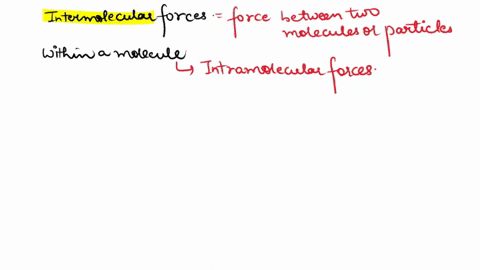 Intermolecular forces = force between two
molecules or particles
Within a molecule
↳ Intramolecular forces.